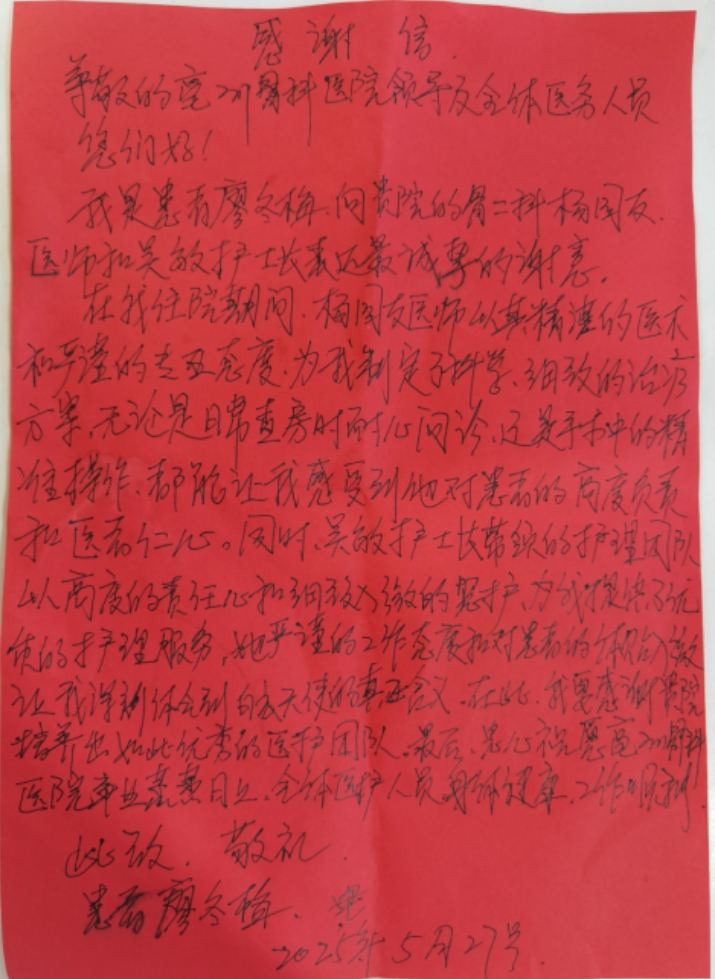 感谢信
尊敬的宜州骨科医院领导及全体医务人员
您们好!
我是患者廖冬梅、向贵院的骨二科杨国友
医师和吴敏护士长表达最诚挚的谢意。
在我住院期间、杨国友医师以其精湛的医术
和严谨的专业态度、为我制定了科学、细致的治疗
方案、无论是日常查房时耐心问诊、还是手术中的精
准操作、都能让我感受到他对患者的高度负责
和医者仁心。同时、吴敏护士长带领的护理团队
以高度的责任心和细致入微的照护、为我提供了优
质的护理服务、她严谨的工作态度和对患者的体贴入微
让我深刻体会到白衣天使的真正含义、在此、我要感谢贵院
培养出如此优秀的医护团队、最后、忠心祝愿宜州骨科
医院事业蒸蒸日上、全体医护人员身体健康、工作顺利!
此致、敬礼、
患者廖冬梅、
2025年5月27号.